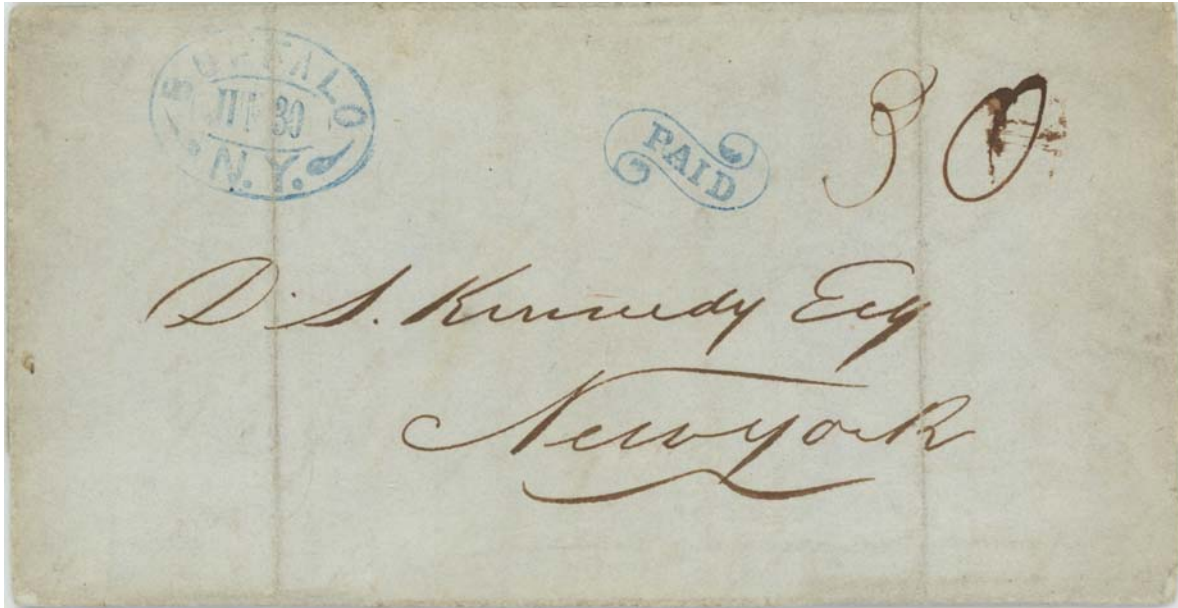 BUFFALO
JUN 30
N.Y.
PAID
30
D. S. Kennedy Esq
New York